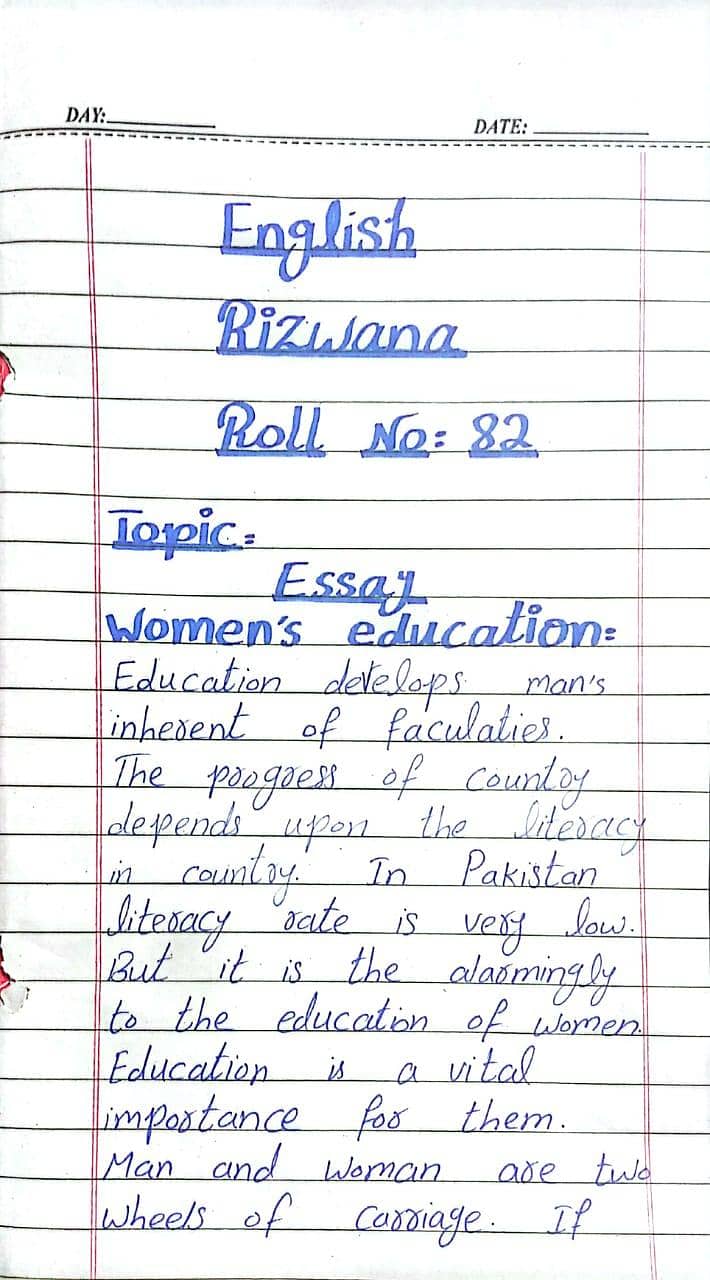 DAY:
DATE:
English
Rizwana
Roll No: 82
Topic:
Essay
Women's education:
Education develops man's
inherent of faculaties.
The progress of country
depends upon the literacy
in country. In Pakistan
literacy rate is very low.
But it is the alarmingly
to the education of women.
Education is a vital
importance for them.
Man and woman are two
wheels of carriage. If